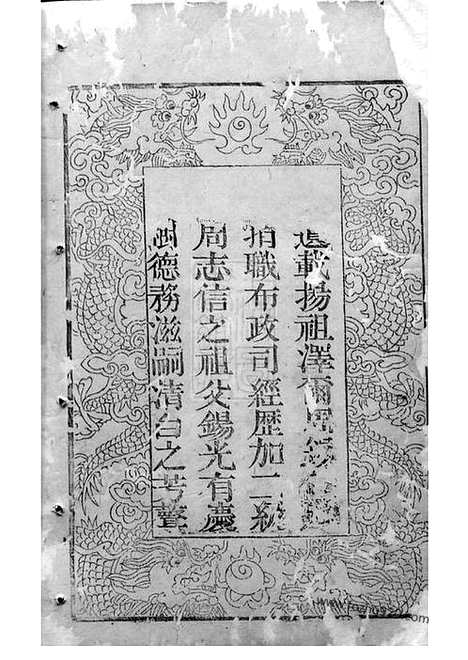 載揚祖澤爾
職布政司經歷加二級
周志信之祖父錫光有慶
樹德務滋嗣清白之芳聲